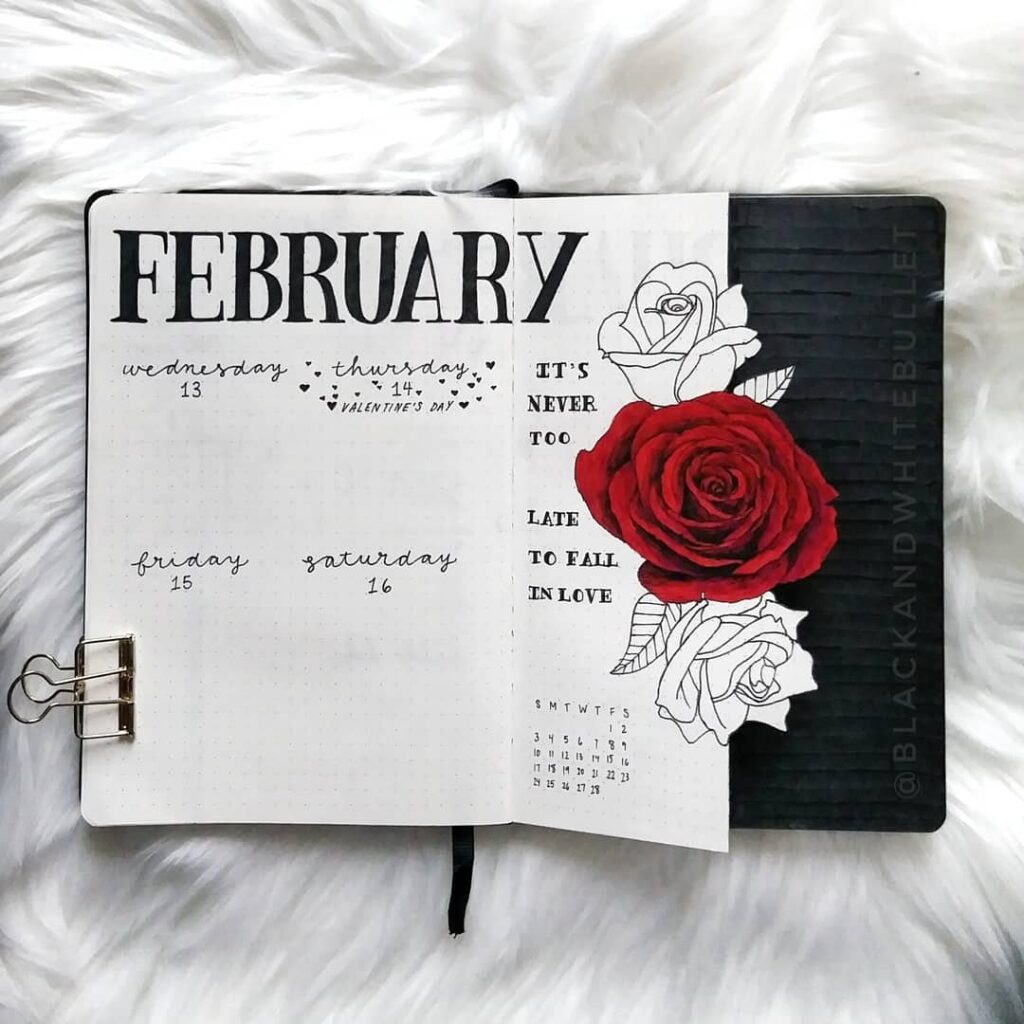 FEBRUARY
wednesday
13
thursday
14
VALENTINE'S DAY
friday
15
saturday
16
IT'S
NEVER
TOO
LATE
TO FALL
IN LOVE
S M T W T F S
1 2
3 4 5 6 7 8 9
10 11 12 13 14 15 16
17 18 19 20 21 22 23
24 25 26 27 28
@BLACKANDWHITEBULLET